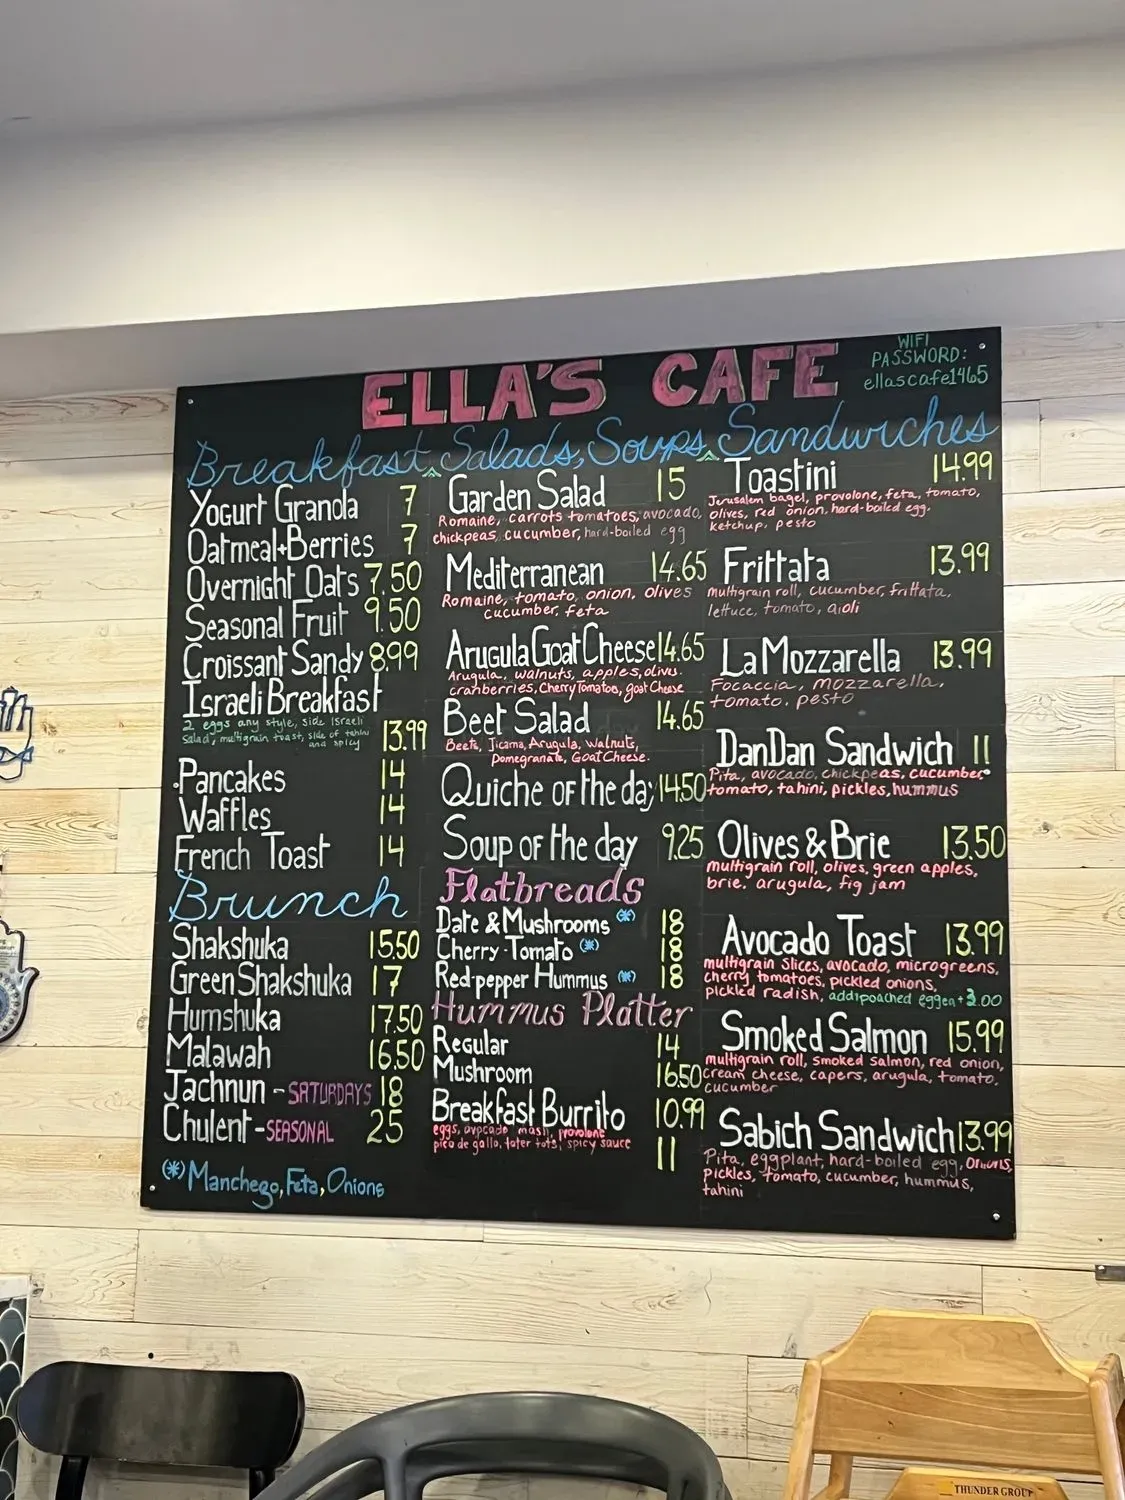 ELLA'S CAFE
WIFI
PASSWORD:
ellascafe1465
Breakfast, Salads, Soups, Sandwiches
Yogurt Granola 7
Oatmeal+Berries 7
Overnight Oats 7.50
Seasonal Fruit 9.50
Croissant Sandy 8.99
Israeli Breakfast
2 eggs any style, side Israeli
salad, multigrain toast, side of tahini
and spicy 13.99
Pancakes 14
Waffles 14
French Toast 14
Brunch
Shakshuka 15.50
Green Shakshuka 17
Humshuka 17.50
Malawah 16.50
Jachnun - SATURDAYS 18
Chulent - SEASONAL 25
(*) Manchego, Feta, Onions
Garden Salad 15
Romaine, carrots tomatoes, avocado,
chickpeas, cucumber, hard-boiled egg
Mediterranean 14.65
Romaine, tomato, onion, olives
cucumber, feta
Arugula Goat Cheese 14.65
Arugula, walnuts, apples, olives.
cranberries, Cherry Tomatoes, goat Cheese
Beet Salad 14.65
Beets, Jicama, Arugula, Walnuts,
Pomegranate, Goat Cheese.
Quiche of the day 14.50
Soup of the day 9.25
Flatbreads
Date & Mushrooms (*) 18
Cherry-Tomato (*) 18
Red-pepper Hummus (*) 18
Hummus Platter
Regular 14
Mushroom 16.50
Breakfast Burrito 10.99
eggs, avocado mash, provolone
pico de gallo, tater tots, spicy sauce
11
Toastini 14.99
Jerusalem bagel, provolone, feta, tomato,
olives, red onion, hard-boiled egg.
ketchup, pesto
Frittata 13.99
multigrain roll, cucumber, frittata,
lettuce, tomato, aioli
La Mozzarella 13.99
Focaccia, mozzarella,
tomato, pesto
DanDan Sandwich 11
Pita, avocado, chickpeas, cucumber
tomato, tahini, pickles, hummus
Olives & Brie 13.50
multigrain roll, olives, green apples,
brie, arugula, fig jam
Avocado Toast 13.99
multigrain Slices, avocado, microgreens,
cherry tomatoes, pickled onions,
pickled radish, add 1 poached egg +3.00
Smoked Salmon 15.99
multigrain roll, smoked salmon, red onion,
cream cheese, capers, arugula, tomato.
cucumber
Sabich Sandwich 13.99
Pita, eggplant, hard-boiled egg, onions,
pickles, tomato, cucumber, hummus,
tahini
THUNDER GROUP